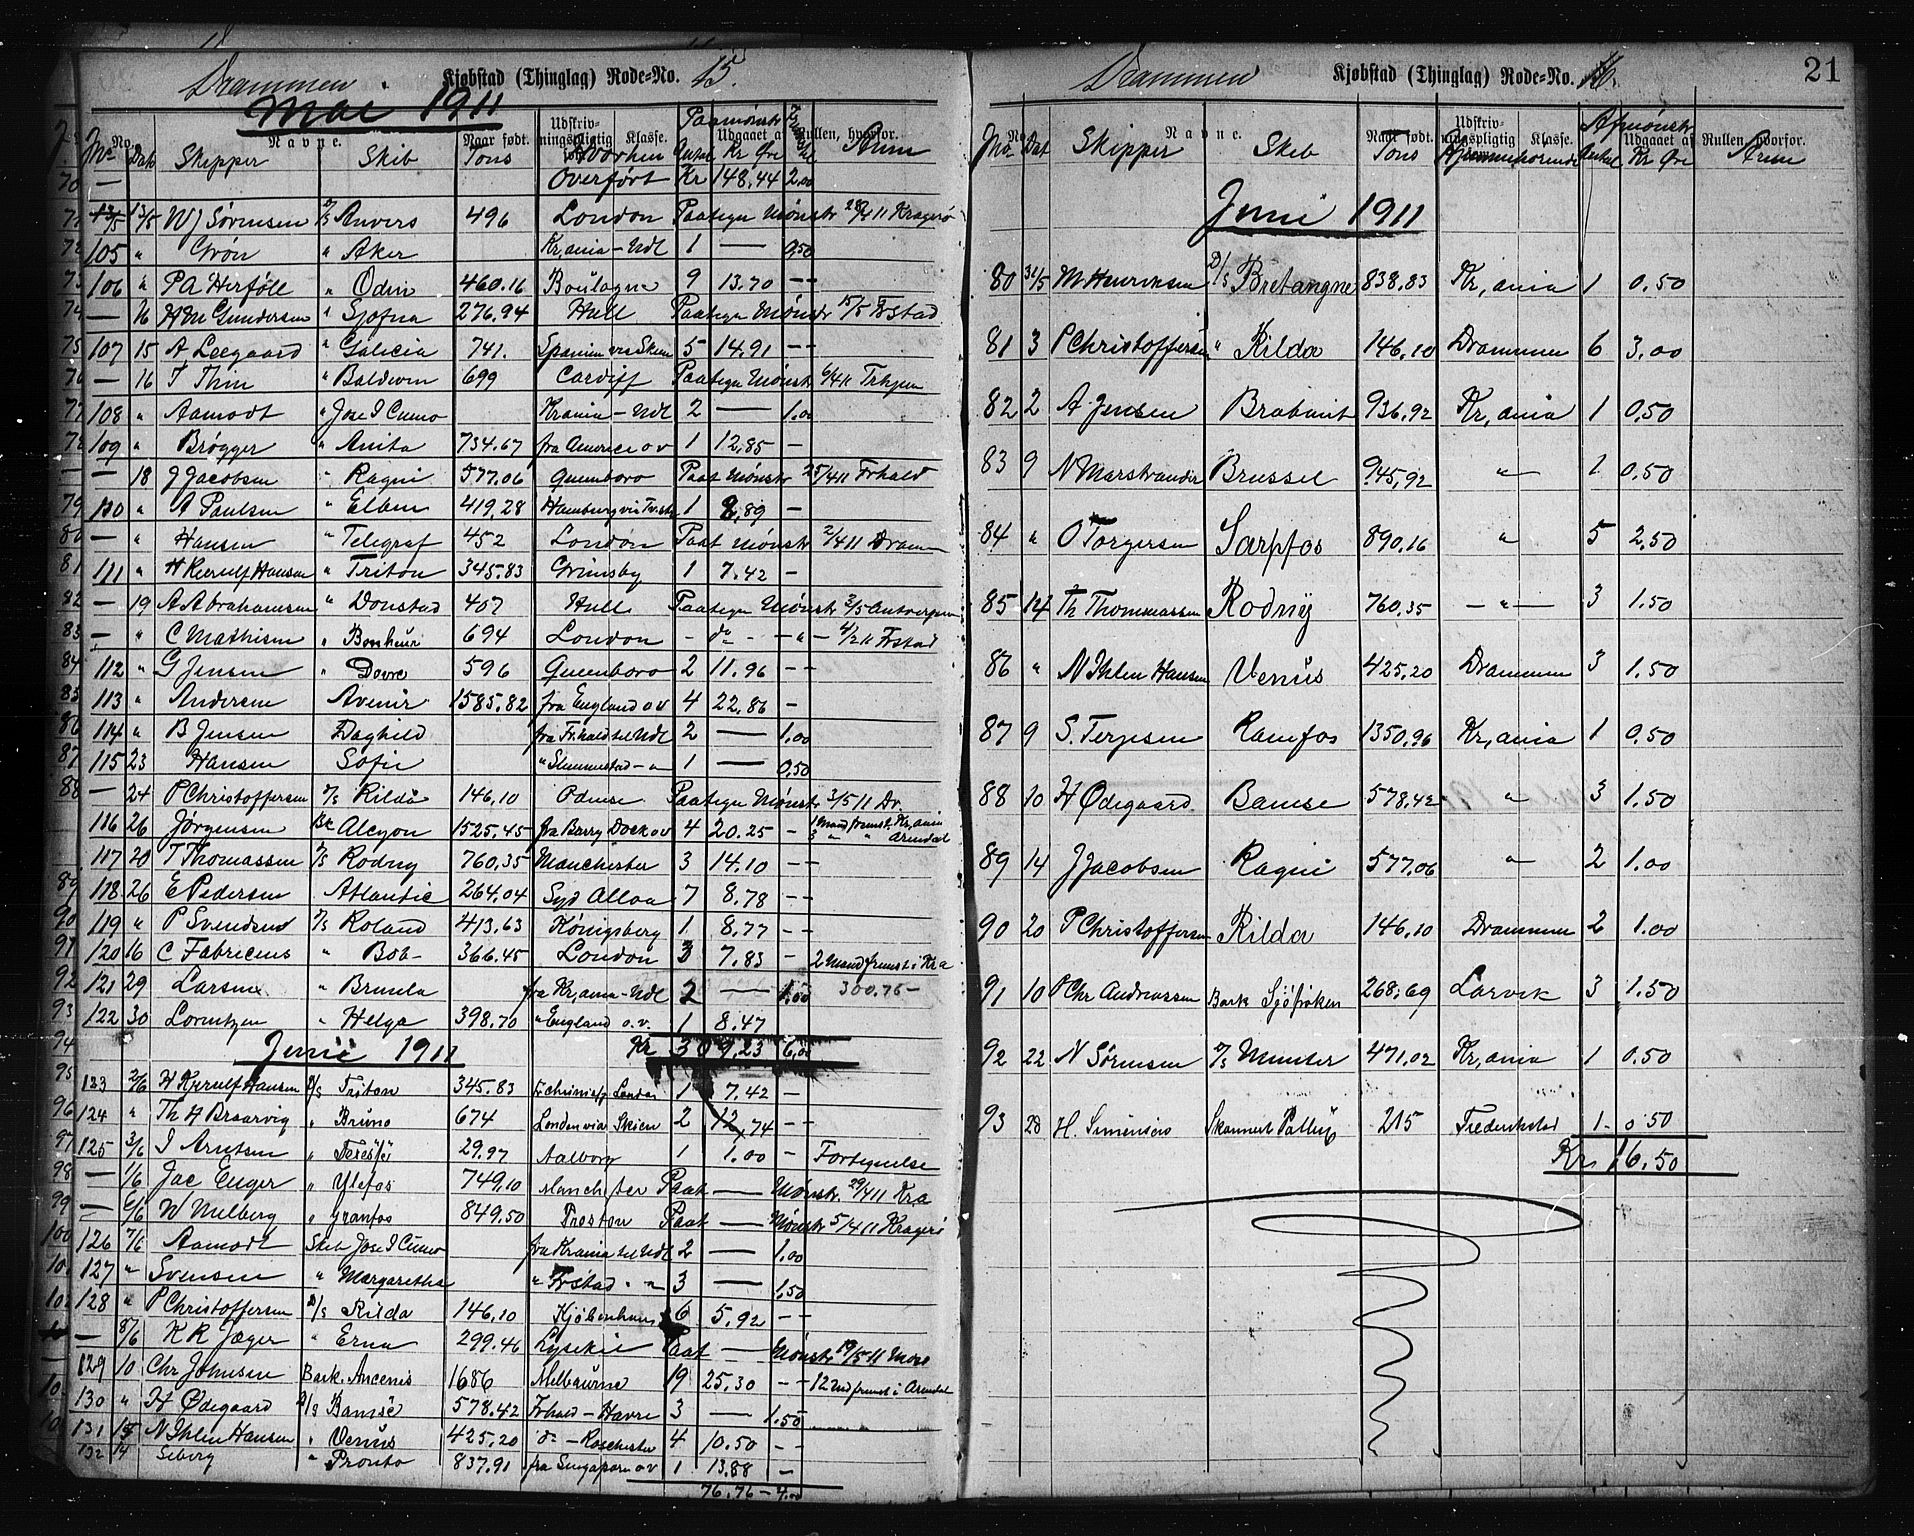 Drammen Kjøbstad (Thinglag) Rode-No. 15.
Mai 1911
No. Navne. Naar født. Udskrivningspligtig Klasse. Udgaaet af Rullen, hvorfor.
No Dato Skipper Skib Tons Hvorhen Paamønstr Antal Kr Øre Anm
— Overført Kr 148.44 2.00
13/5 13/5 W J Sørensen D/S Anvers 496 London Paategn Mønstr 28/4 11 Kragerø
105 " Grøn " Aker Kr,ania - Udl 1 — 0,50
106 " P A Herföll " Odin 460.16 Boulogne 9 13.70 - -
— 16 H M Gundersen " Sjofna 276.94 Hull Paategn Mønstr 15/5 Frstad
107 15 A Leegaard " Galicia 741. Spanien via Skien 5 14.91 - -
— 16 T Thin " Baldwin 699 Cardiff Paategn Mønstr 6/4 11 Trhjem
108 " Aamodt " Jose I Cumo Krania - Udl 2 — 1.00
109 " Brøgger " Anita 734.67 fra America o v 1 12.85 -
— 18 J Jacobsen " Ragni 577.06 Queenboro Paat Mønstr 25/4 11 Frhald
110 " A Paulsen " Elben 419.28 Hamburg 1 8.89 -
— " Hansen " Telegraf 452 London Paat Mønstr 2/4 11 Dramen
111 " H Kjerulf Hansen " Triton 345.83 Grimsby 1 7.42 -
— 19 A Abrahamsen " Donstad 407 Hull Paategn Mønstr 3/5 Antwerpen
— " C Mathisen " 694 London - do - - " - 4/2 11 Frstad
112 " G Jensen " Dovre 596 Queenboro 2 11.96 - -
113 " Andersen Avenir 1585.82 fra England o v 4 22.86 -
114 " B Jensen Daghild fra Fr.hald til Udl 2 — 1.00
115 23 Hansen Sofie " Slemmestad - " 1 — 0,50
— 24 P Christoffersen D/S Rilda 146.10 Odense Paategn Mønstr 3/5 11 Dr.
116 26 Jørgensen Bk Alcyon 1525.45 fra Barry Dock o v 4 20.25 - 1 Mand fremst. Kr,ania
3 " " Arendal
117 20 T Thomassen D/S Rodny 760.35 Manchester 3 14.10 - -
118 26 E Pedersen Atlantic 264.04 Syd Alloa 7 8.78 - -
119 " P Svendsen D/S Roland 413.63 Königsberg 1 8.77 - -
120 16 C Fabricius " Boa 366.45 London 3 7.83 - 2 Mand fremst i Kra
121 29 Larsen " Brunla fra Kr,ania - Udl 2 — 1.00 300.76 -
122 30 Lorentzen " Helga 398.70 " England o. v. 1 8.47
Kr 309.23 6,00
Juni 1911
123 2/6 H Kjerulf Hansen D/S Triton 345.83 London 1 7.42 -
124 " Th H Braarvig " Bruno 674 London via Skien 2 12,74 -
125 3/6 I Arntsen " 29.97 Aalborg 1 1.00 - Fortegnelse
— 1/6 Jac Enger " Ulefos 749.10 Manchester Paat — Mønstr 29/4 11 Kra
— 6/6 W Milberg " Granfos 849.50 Preston Paat — Mønstr 5/4 11 Kragerø
126 7/6 Aamodt Skib Jose I Cumo fra Krania til Udl 2 — 1.00
127 " Svensen " Margaretha " Frstad - " 3 — 1.50
128 " P Christoffersen D/S Rilda 146.10 Kjøbenhavn 6 5.92 - -
— 8/6 K R Jæger " Erna 299.46 Lysekil Paat — Mønstr 19/5 11 Moss
129 10 Chr Johnsen Bark. Ancenis 1686 Melbourne 19 25.30 - - 12 Md fremst i Arendal
130 " H Ødegaard D/S Bamse 578.42 Frhald - Havre 3 — 1.50
131 15 N Ihlen Hansen " Venus 425.20 do - Rochester 4 10.50 - -
132 14 Seberg " Pronto 837.91 fra Singapore o v 1 13.88 -
76.76 - 4.00
Drammen Kjøbstad (Thinglag) Rode-No. 16. 21
No. Navne. Naar født. Udskrivningspligtig Klasse. Udgaaet af Rullen, hvorfor.
No Dat Skipper Skib Tons Hjemmehørende Afmønstr Antal Kr Øre Anm
Juni 1911
80 31/5 M Henriksen D/S Bretangne 838.83 Kr,ania 1 0.50
81 3 P Christoffersen " Rilda 146.10 Drammen 6 3,00
82 2 A Jensen Brabant 936.92 Kr,ania 1 0.50
83 9 N Marstrander Brussel 945,92 " 1 0.50
84 " O Torgersen Sarpfos 890.16 " 5 2,50
85 14 Th Thommassen Rodny 760.35 - " - 3 1.50
86 " N Ihlen Hansen Venus 425.20 Drammen 3 1.50
87 9 S. Terjesen Ramfos 1350.96 Kr,ania 1 0.50
88 10 H Ødegaard Bamse 578.42 " 3 1.50
89 14 J Jacobsen Ragni 577.06 " 2 1.00
90 20 P Christoffersen Rilda 146.10 Drammen 2 1.00
91 10 P Chr Andreassen Bark Sjöfröken 268.69 Larvik 3 1.50
92 22 N Sørensen D/S Munster 471.02 Kr,ania 1 0.50
93 28 H. Simensen Skonnert Pallup 215 Frederikstad 1 0 50
Kr 16.50